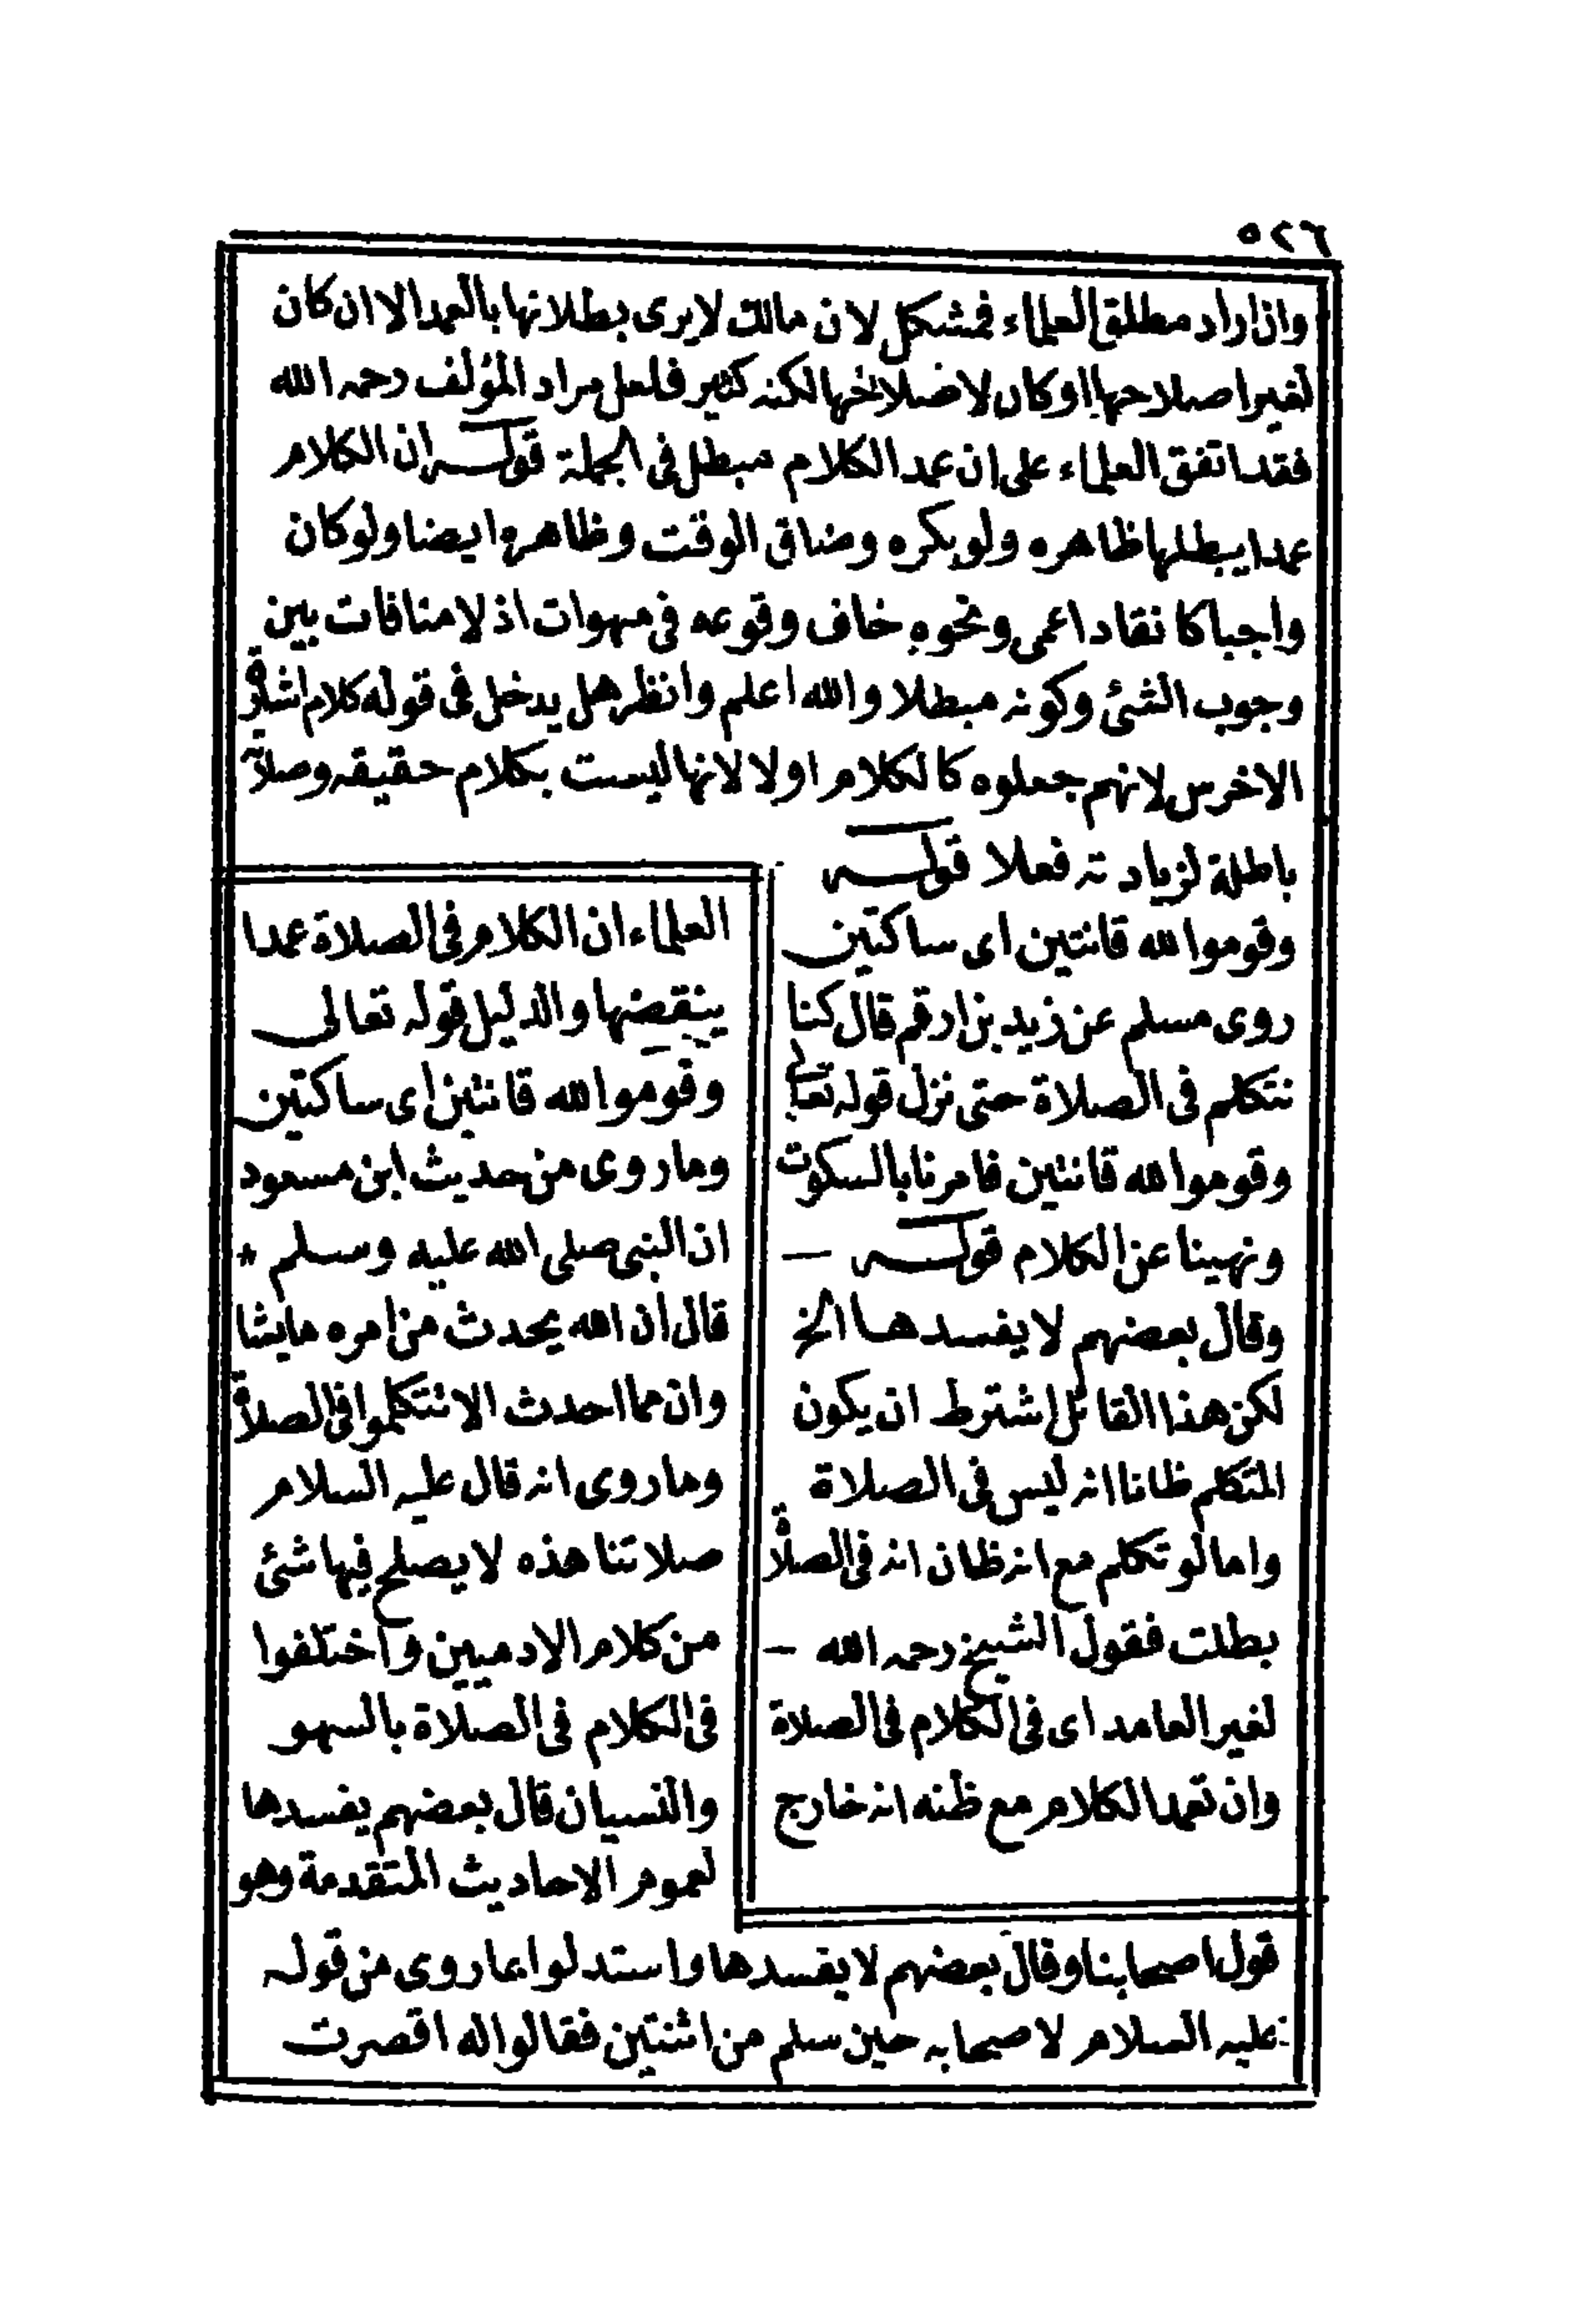 ٥٢٦
وان اراد مطلق العلماء فمشكل لان مالك لا يرى بطلانها بالعمد الا ان كان
لغير اصلاحها او كان لاصلاحها لكنه كثير فلعل مراد المؤلف رحمه الله
فقد اتفق العلماء على ان عمد الكلام مبطل فى الجملة قوله ان الكلام
عمدا يبطلها ظاهره ولو بكره وضاق الوقت وظاهره ايضا ولو كان
واجبا كانقاد اعمى ونحوه خاف وقوعه فى مهوات اذ لا منافات بين
وجوب الشئ وكونه مبطلا والله اعلم وانظر هل يدخل فى قوله كلام اشارة
الاخرس لانهم جعلوه كالكلام اولا لانها ليست بكلام حقيقه وصلاة
باطلة لزيادته فعلا قوله
وقوموا لله قانتين اى ساكتين
روى مسلم عن زيد بن ارقم قال كنا
نتكلم فى الصلاة حتى نزل قوله تعالى
وقوموا لله قانتين فامرنا بالسكوت
ونهينا عن الكلام قوله —
وقال بعضهم لا يفسدها الخ
لكن هذا القائل اشترط ان يكون
المتكلم ظانا انه ليس فى الصلاة
واما لو تكلم مع انه ظان انه فى الصلاة
بطلت فقول الشيخ رحمه الله —
لغير العامد اى فى الكلام فى الصلاة
وان تعمد الكلام مع ظنه انه خارج
العلماء ان الكلام فى الصلاة عمدا
ينقضها والدليل قوله تعالى
وقوموا لله قانتين اى ساكتين
وما روى من حديث ابن مسعود
ان النبى صلى الله عليه وسلم *
قال ان الله يحدث من امره ما يشا
وان مما احدث الا تتكلموا فى الصلاة
وما روى انه قال عليه السلام
صلاتنا هذه لا يصلح فيها شئ
من كلام الادميين واختلفوا
فى الكلام فى الصلاة بالسهو
والنسيان قال بعضهم يفسدها
لعموم الاحاديث المتقدمة وهو
قول اصحابنا وقال بعضهم لا يفسدها واستدلوا بما روى من قوله
عليه السلام لاصحابه حين سلم من اثنتين فقالوا له اقصرت